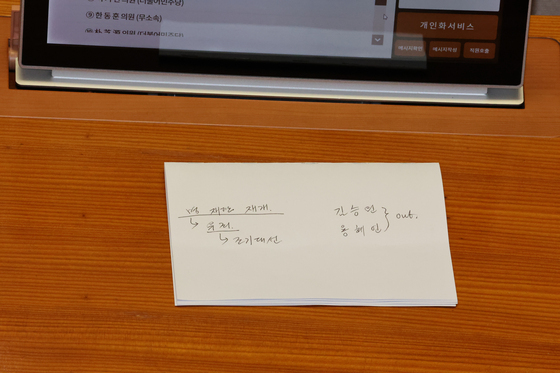 한동훈 의원 (무소속)
개인화서비스
메시지확인 메시지작성 직원호출
명 재판 재개.
↳ 유죄.
↳ 조기대선
김승연
용혜인 } out.